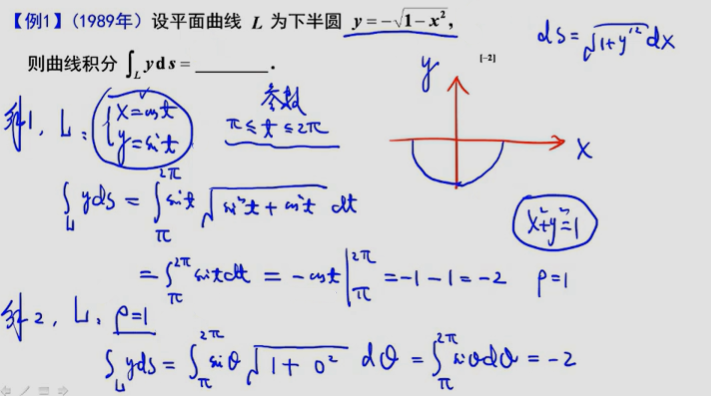 【例1】(1989年) 设平面曲线 L 为下半圆 y=-√(1-x²),
ds=√(1+y'²)dx
则曲线积分 ∫_L yds=________.
[-2]
y
x
解1, L: {x=cost
y=sint
参数
π≤t≤2π
∫_L yds = ∫_π^{2π} sint √(sin²t+cos²t) dt
x²+y²=1
= ∫_π^{2π} sintdt = -cost |_π^{2π} = -1-1=-2
ρ=1
解2, L: ρ=1
∫_L yds = ∫_π^{2π} sinθ √(1+0²) dθ = ∫_π^{2π} sinθdθ = -2